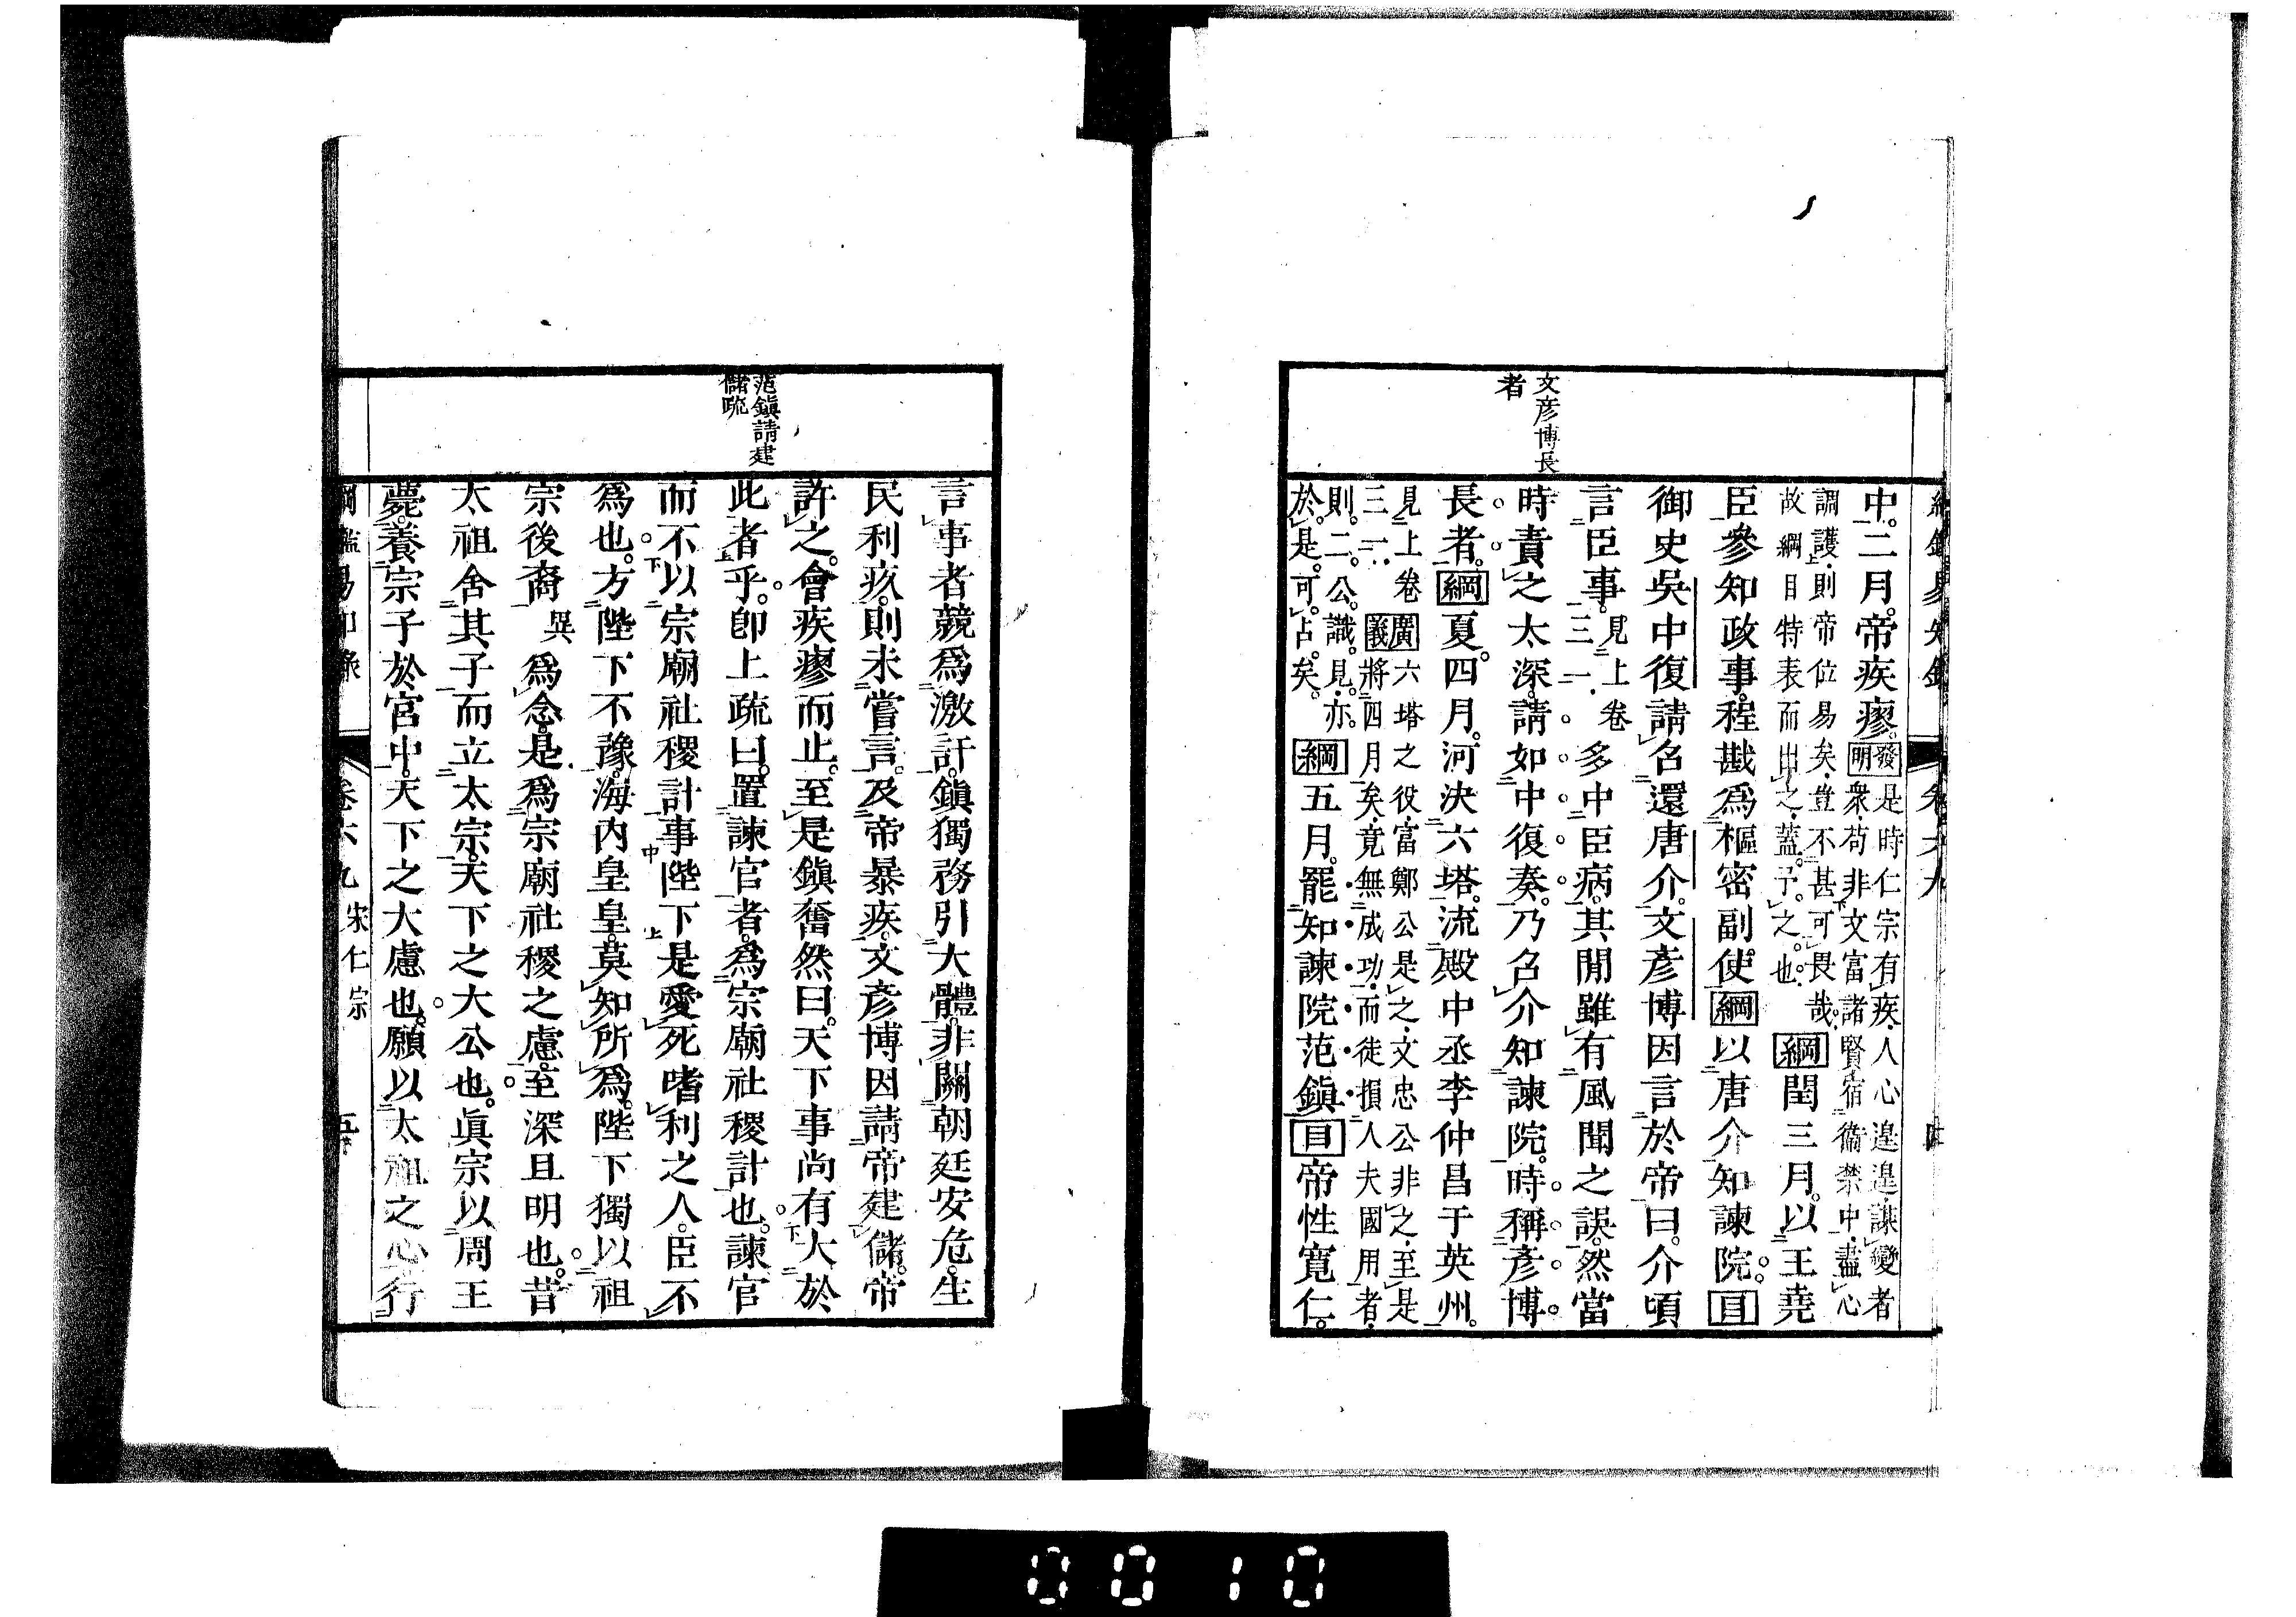 文彥博長
者
中。二月。帝疾瘳。發明是時仁宗有疾。人心遑遑。謀變者
衆。苟非文富諸賢宿衞禁中。盡心
調護。則帝位易矣。豈不甚可畏哉。
故綱目特表而出之。蓋予之也。綱閏三月。以王堯
臣參知政事。程戡爲樞密副使。綱以唐介知諫院。目
御史吳中復請召還唐介。文彥博因言於帝曰。介頃
言臣事。見上卷三一。多中臣病。其閒雖有風聞之誤。然當
時責之太深。請如中復奏。乃召介知諫院。時稱彥博
長者。綱夏四月。河決六塔。流殿中丞李仲昌于英州。
見上卷三一。廣義六塔之役。富鄭公是之。文忠公非之。至是
將四月矣。竟無成功。而徒損人夫國用者。
則二公識見。亦
於是可占矣。綱五月。罷知諫院范鎭。目帝性寬仁。
范鎭請建
儲疏
言事者競爲激訐。鎭獨務引大體。非關朝廷安危。生
民利疚。則未嘗言。及帝暴疾。文彥博因請帝建儲。帝
許之。會疾瘳而止。至是鎭奮然曰。天下事尚有大於
此者乎。卽上疏曰。置諫官者。爲宗廟社稷計也。諫官
而不以宗廟社稷計事陛下。是愛死嗜利之人。臣不
爲也。方陛下不豫。海内皇皇。莫知所爲。陛下獨以祖
宗後裔異爲念。是爲宗廟社稷之慮。至深且明也。昔
太祖舍其子而立太宗。天下之大公也。眞宗以周王
薨。養宗子於宮中。天下之大慮也。願以太祖之心。行
卷六九 宋仁宗 五
0010